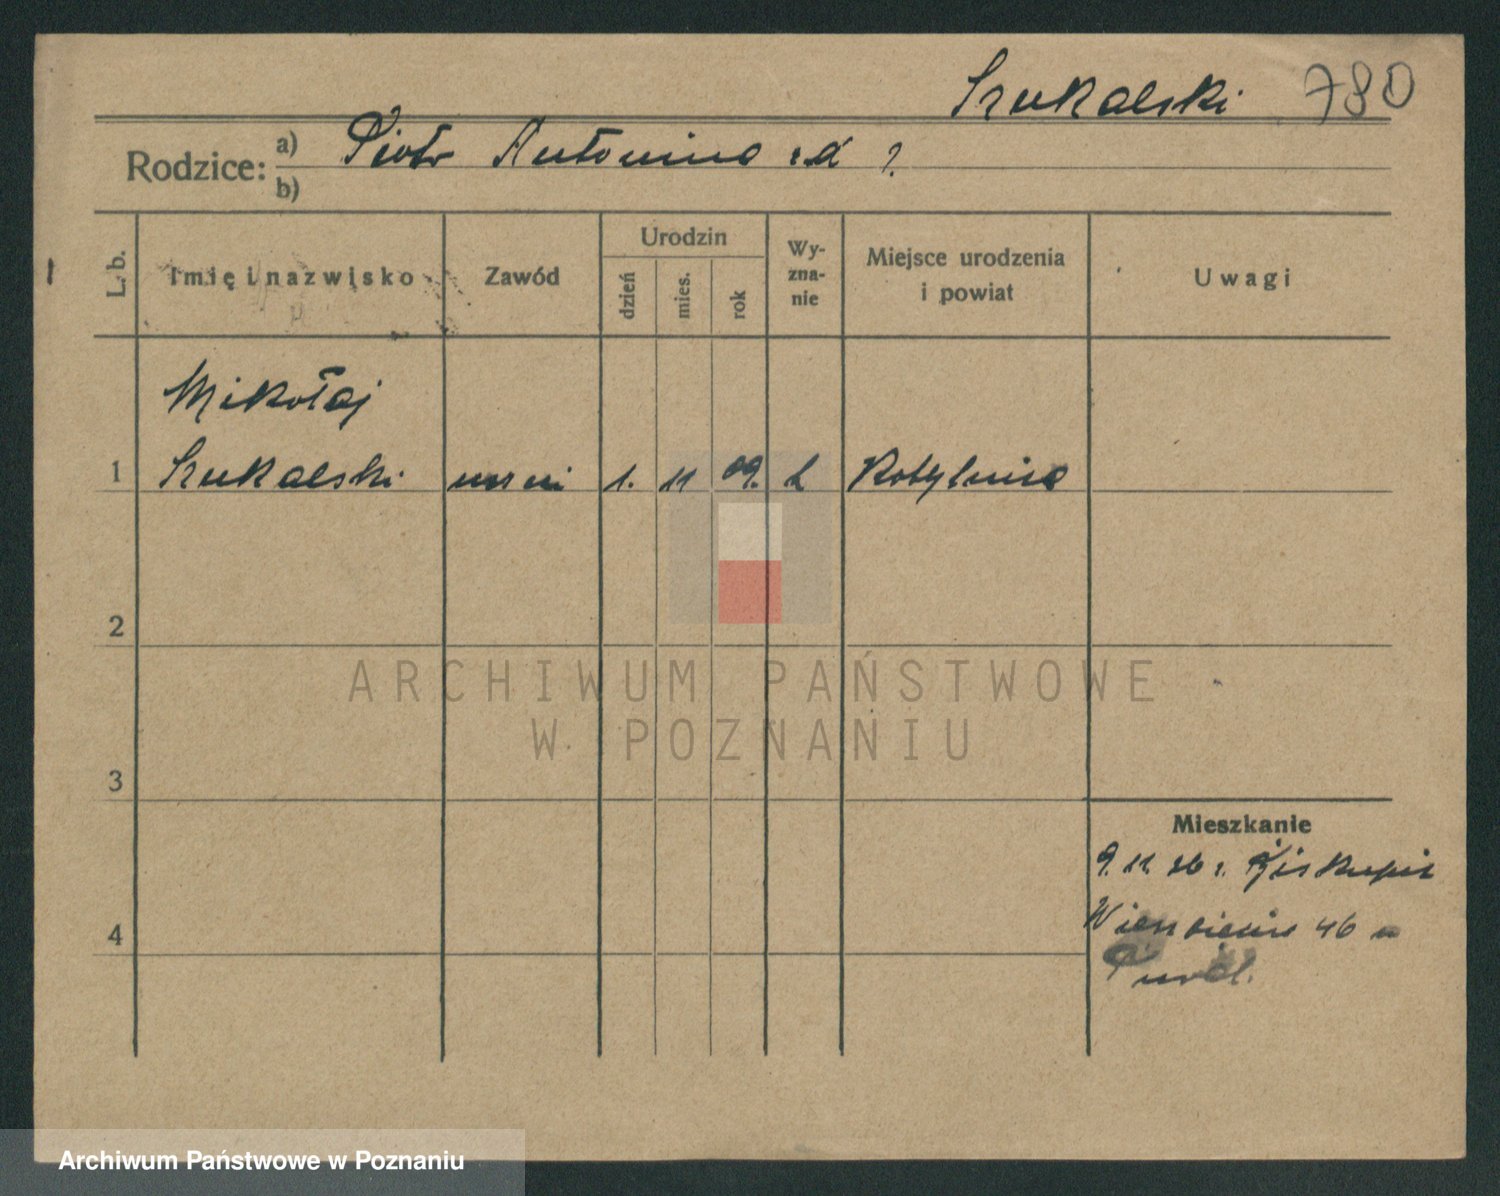 Szukalski 780
Rodzice: a) Piotr Antonina z d ?
b)
L. b.
Imię i nazwisko
Zawód
Urodzin
dzień
mies.
rok
Wy-
zna-
nie
Miejsce urodzenia
i powiat
Uwagi
Mikołaj
1 Szukalski uczeń 1. 11 09. k Kobylnica
2
ARCHIWUM PAŃSTWOWE
W POZNANIU
3
Mieszkanie
9. 11. 26 r.
4
46
Archiwum Państwowe w Poznaniu